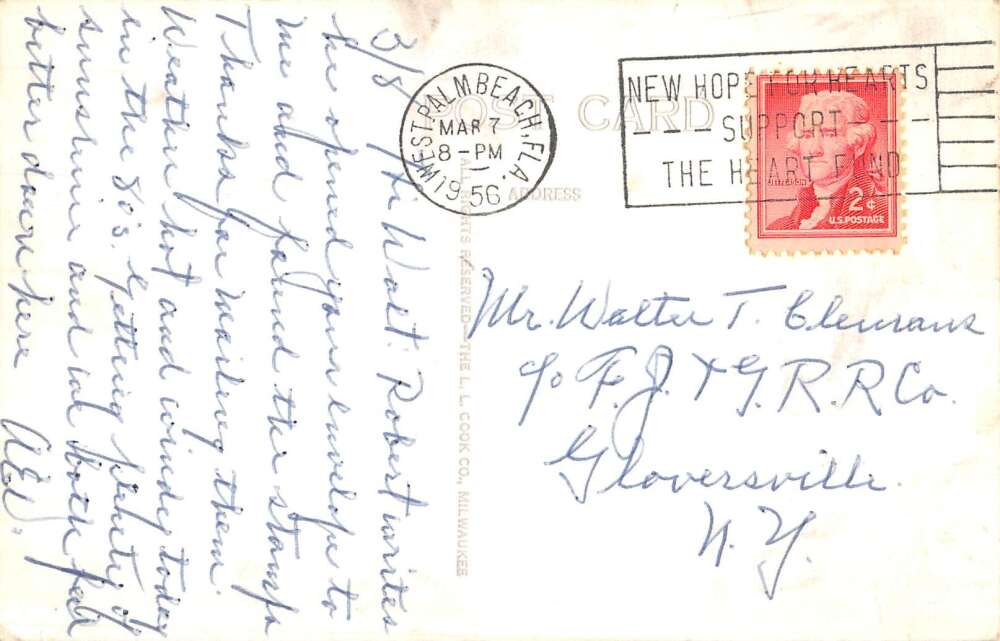 3/7 Hi Walt: Robert writes
he opened your envelope to
me and found the stamps
Thanks for mailing them.
Weather hot and windy today
in the 80's. getting plenty of
sunshine and we both feel
better down here
POST CARD
ADDRESS
WEST PALM BEACH, FLA.
MAR 7
8-PM
1956
NEW HOPE FOR HEARTS
--- SUPPORT ---
THE HEART FUND
JEFFERSON
2¢
U.S. POSTAGE
ALL RIGHTS RESERVED—THE L. L. COOK CO., MILWAUKEE
Mr. Walter T. Clemans
c/o F. J. & G. R. R. Co.
Gloversville.
N. Y.